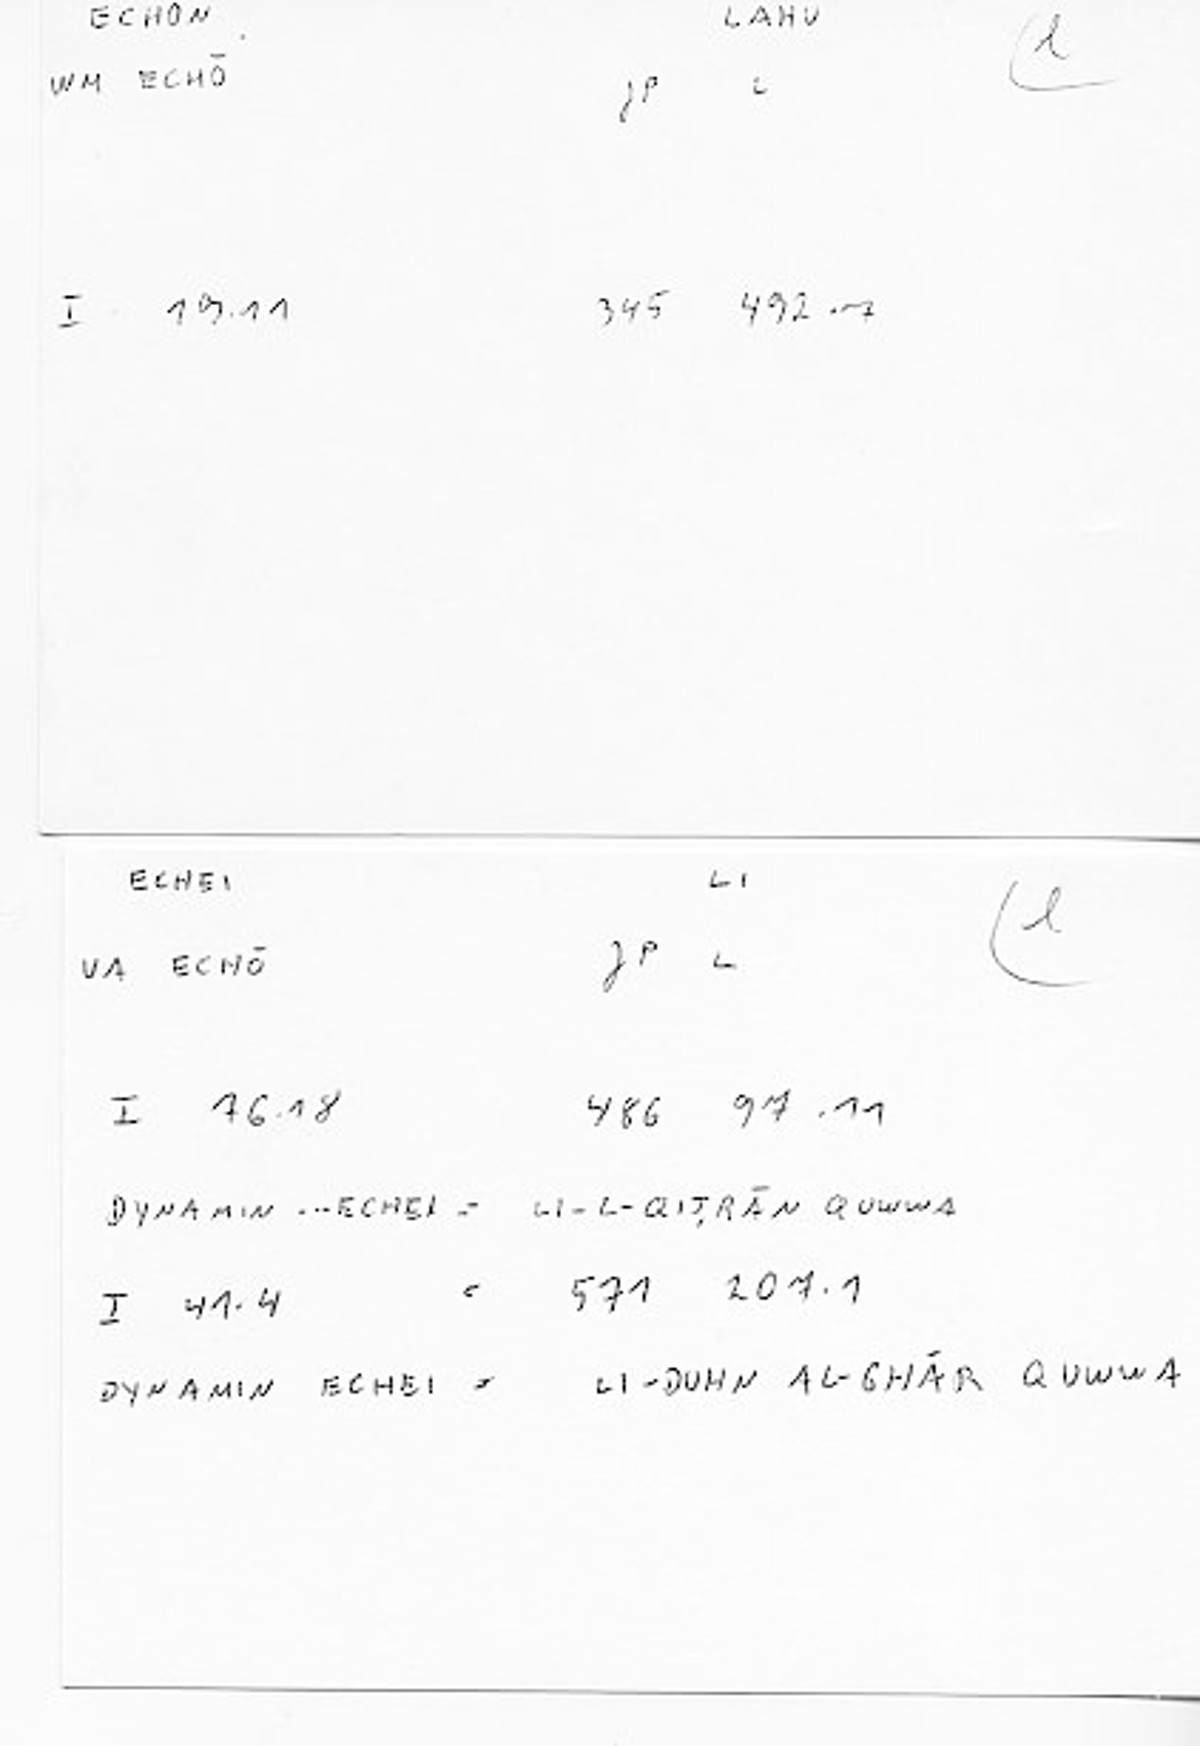 ECHON LAHU
WM ECHŌ JP L l
I 19.11 345 492.7
ECHEI LI
VA ECHŌ JP L l
I 76.18 486 97.11
DYNAMIN ...ECHEI = LI-L-QIṬRĀN QUWWA
I 41.4 = 571 207.1
DYNAMIN ECHEI = LI-DUHN AL-GHĀR QUWWA